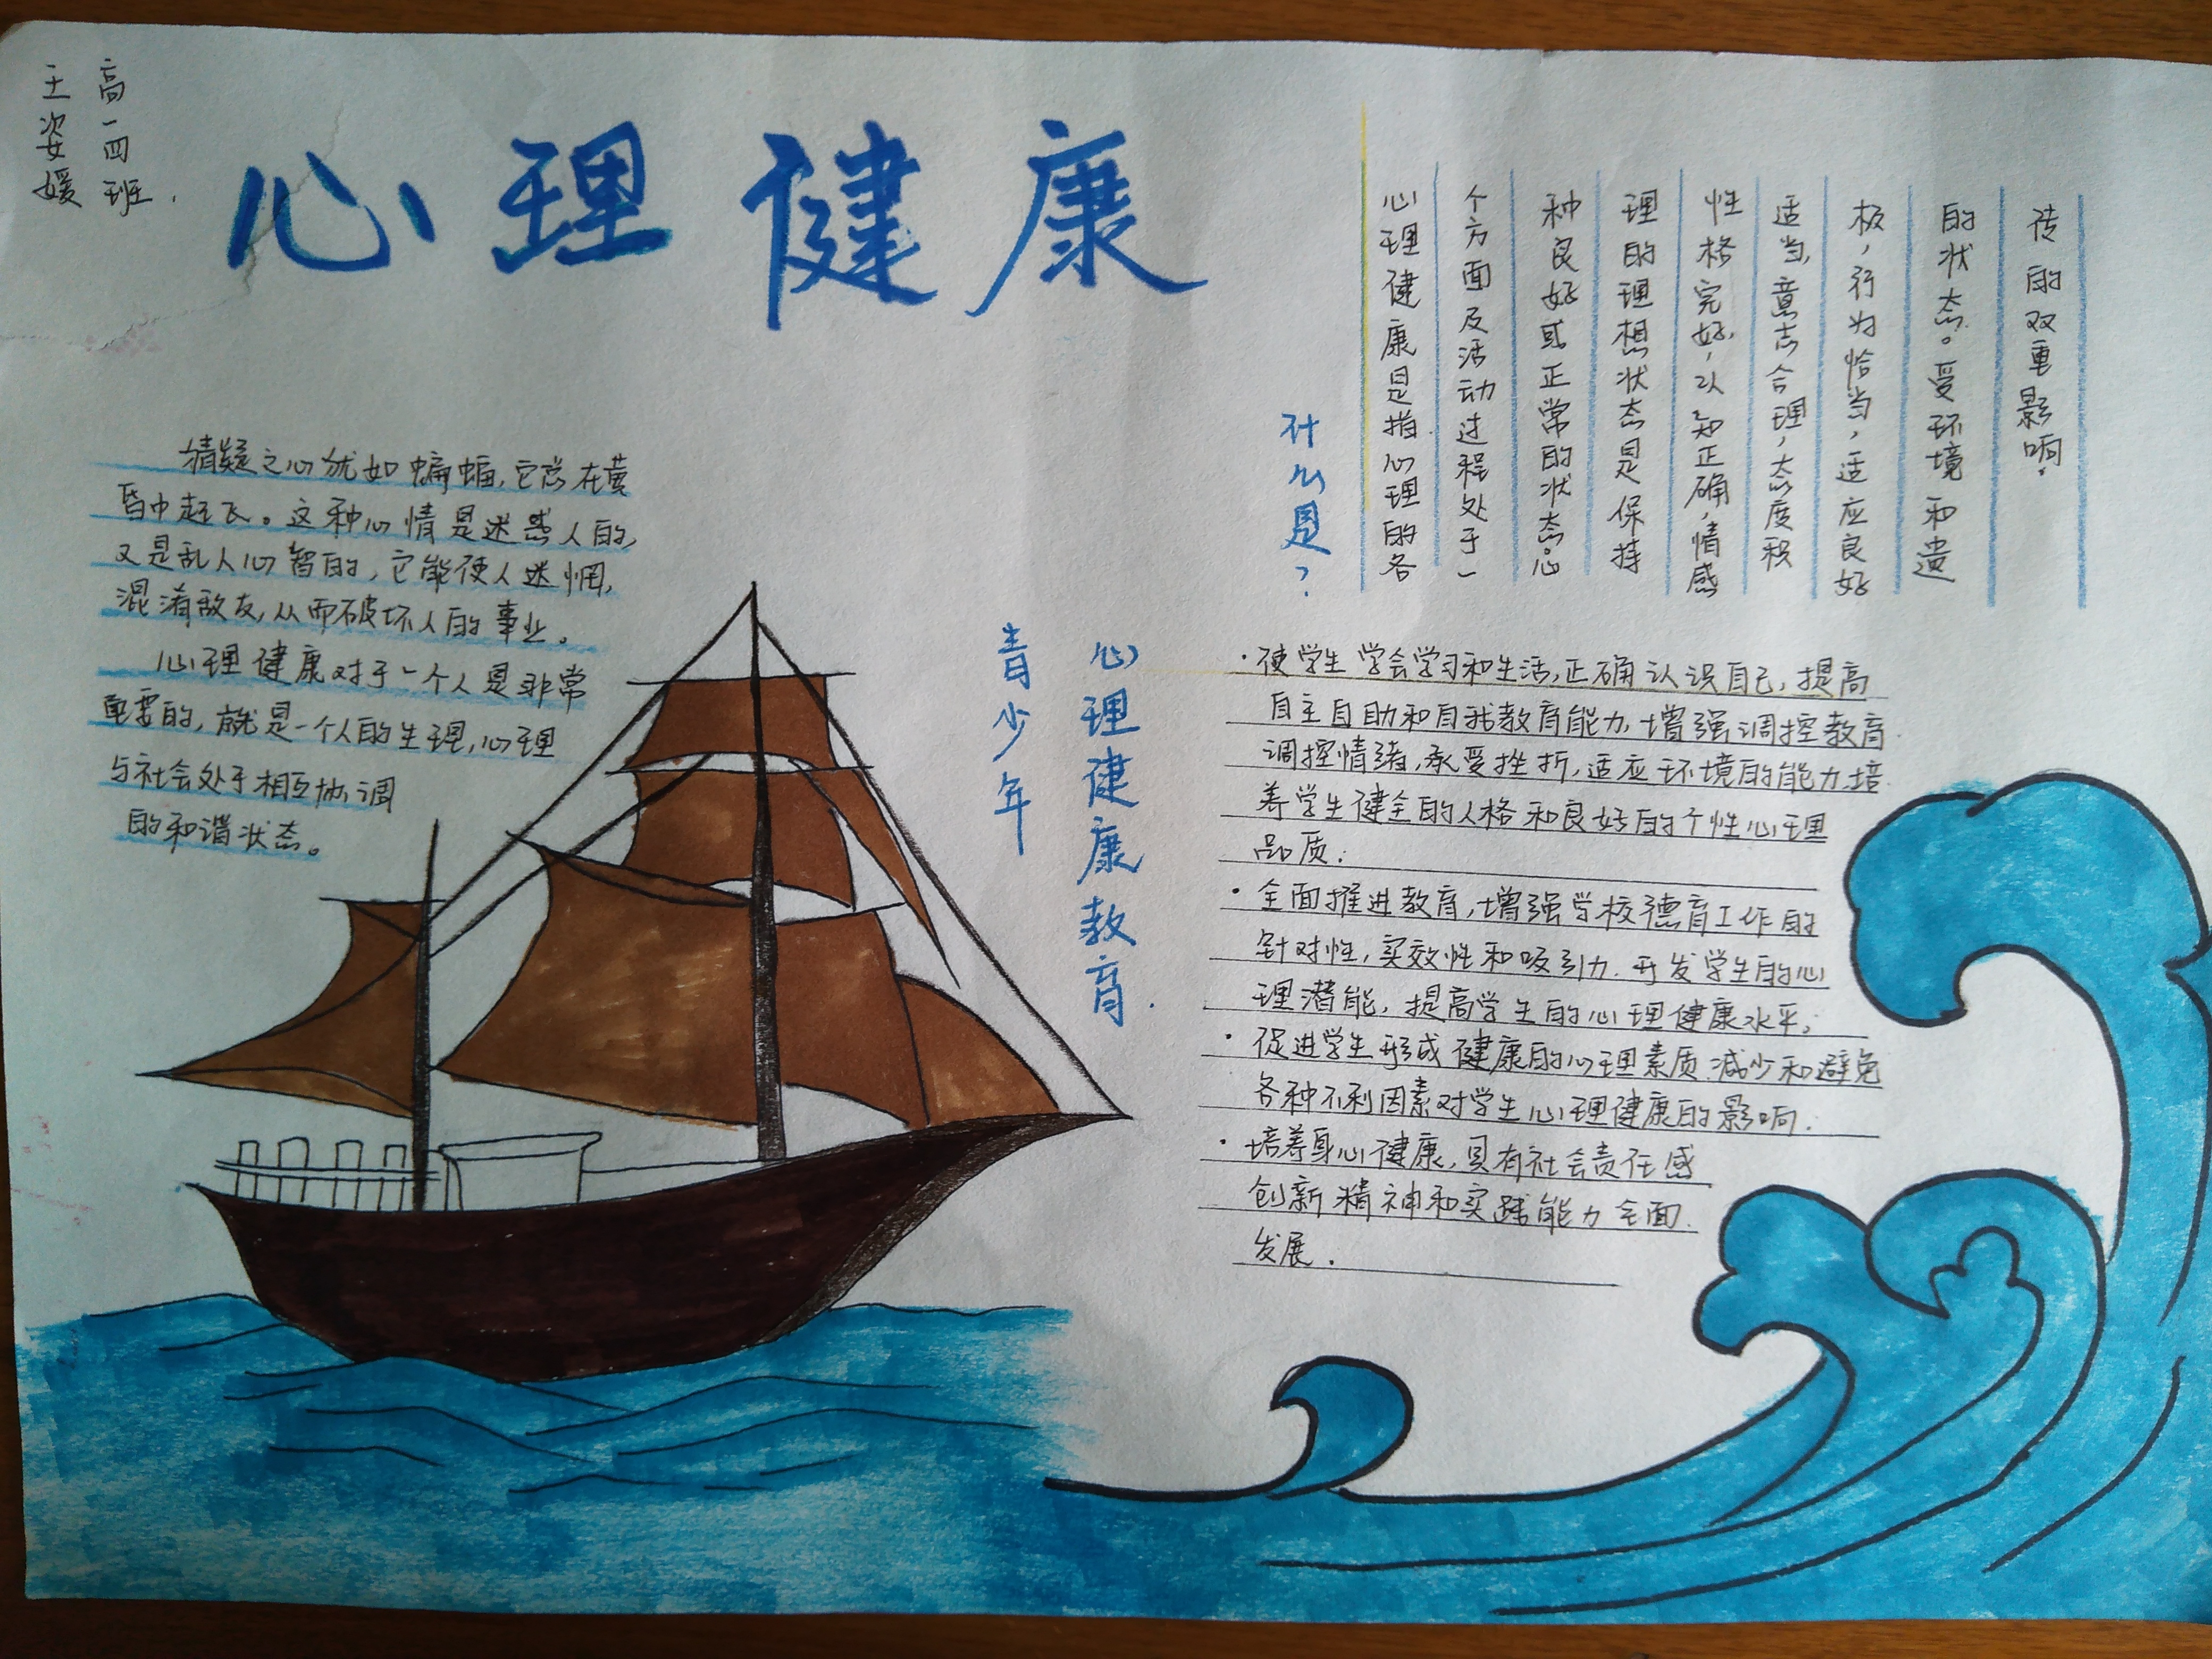 高一四班.
王姿媛
心理健康
猜疑之心犹如蝙蝠,它总在黄
昏中起飞。这种心情是迷惑人的,
又是乱人心智的,它能使人迷惘,
混淆敌友,从而破坏人的事业。
心理健康对于一个人是非常
重要的,就是一个人的生理,心理
与社会处于相互协调
的和谐状态。
什么是?
心理健康是指心理的各
个方面及活动过程处于一
种良好或正常的状态。心
理的理想状态是保持
性格完好,认知正确,情感
适当,意志合理,态度积
极,行为恰当,适应良好
的状态。受环境和遗
传的双重影响.
青少年
心理健康教育.
·使学生学会学习和生活,正确认识自己,提高
自主自助和自我教育能力,增强调控教育
调控情绪,承受挫折,适应环境的能力.培
养学生健全的人格和良好的个性心理
品质;
·全面推进教育,增强学校德育工作的
针对性,实效性和吸引力.开发学生的心
理潜能,提高学生的心理健康水平;
·促进学生形成健康的心理素质.减少和避免
各种不利因素对学生心理健康的影响.
·培养身心健康,具有社会责任感
创新精神和实践能力全面
发展.